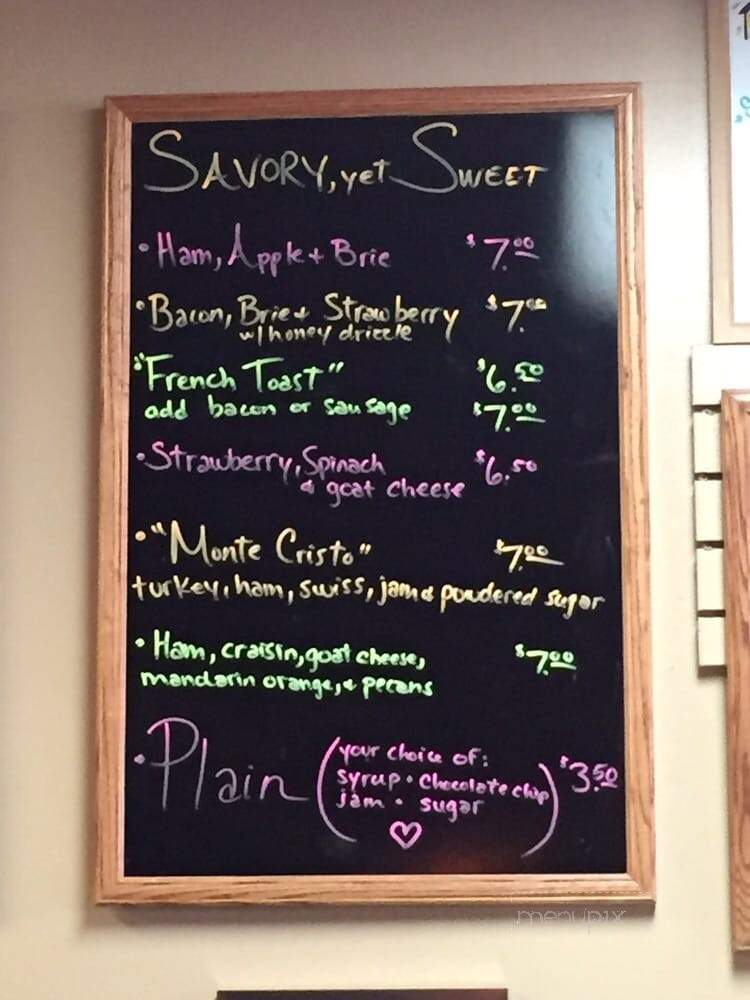 SAVORY, yet SWEET
• Ham, Apple + Brie $7.00
• Bacon, Brie + Strawberry $7.00
w/ honey drizzle
"French Toast" $6.50
add bacon or sausage $7.00
• Strawberry, Spinach $6.50
& goat cheese
• "Monte Cristo" $7.00
turkey, ham, swiss, jam & powdered sugar
• Ham, craisin, goat cheese, $7.00
mandarin orange, & pecans
• Plain (your choice of: $3.50
syrup • Chocolate chip
jam • sugar)
menupix